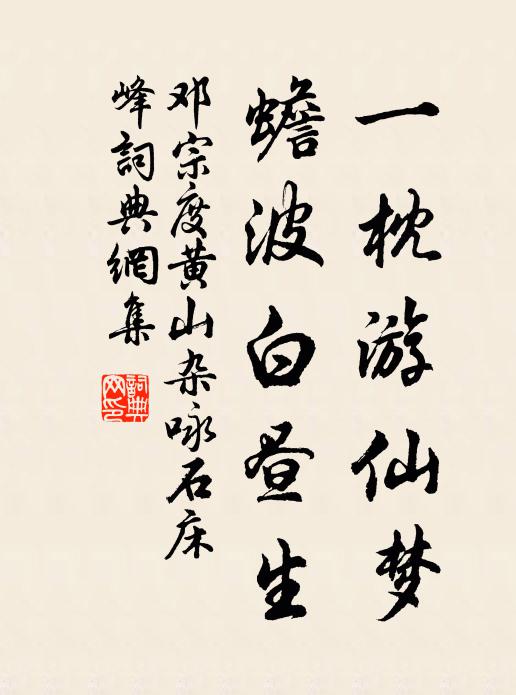 一枕游仙梦
蟾波白昼生
邓宗度黄山杂咏石床
峰詞典網集
詞典
网印